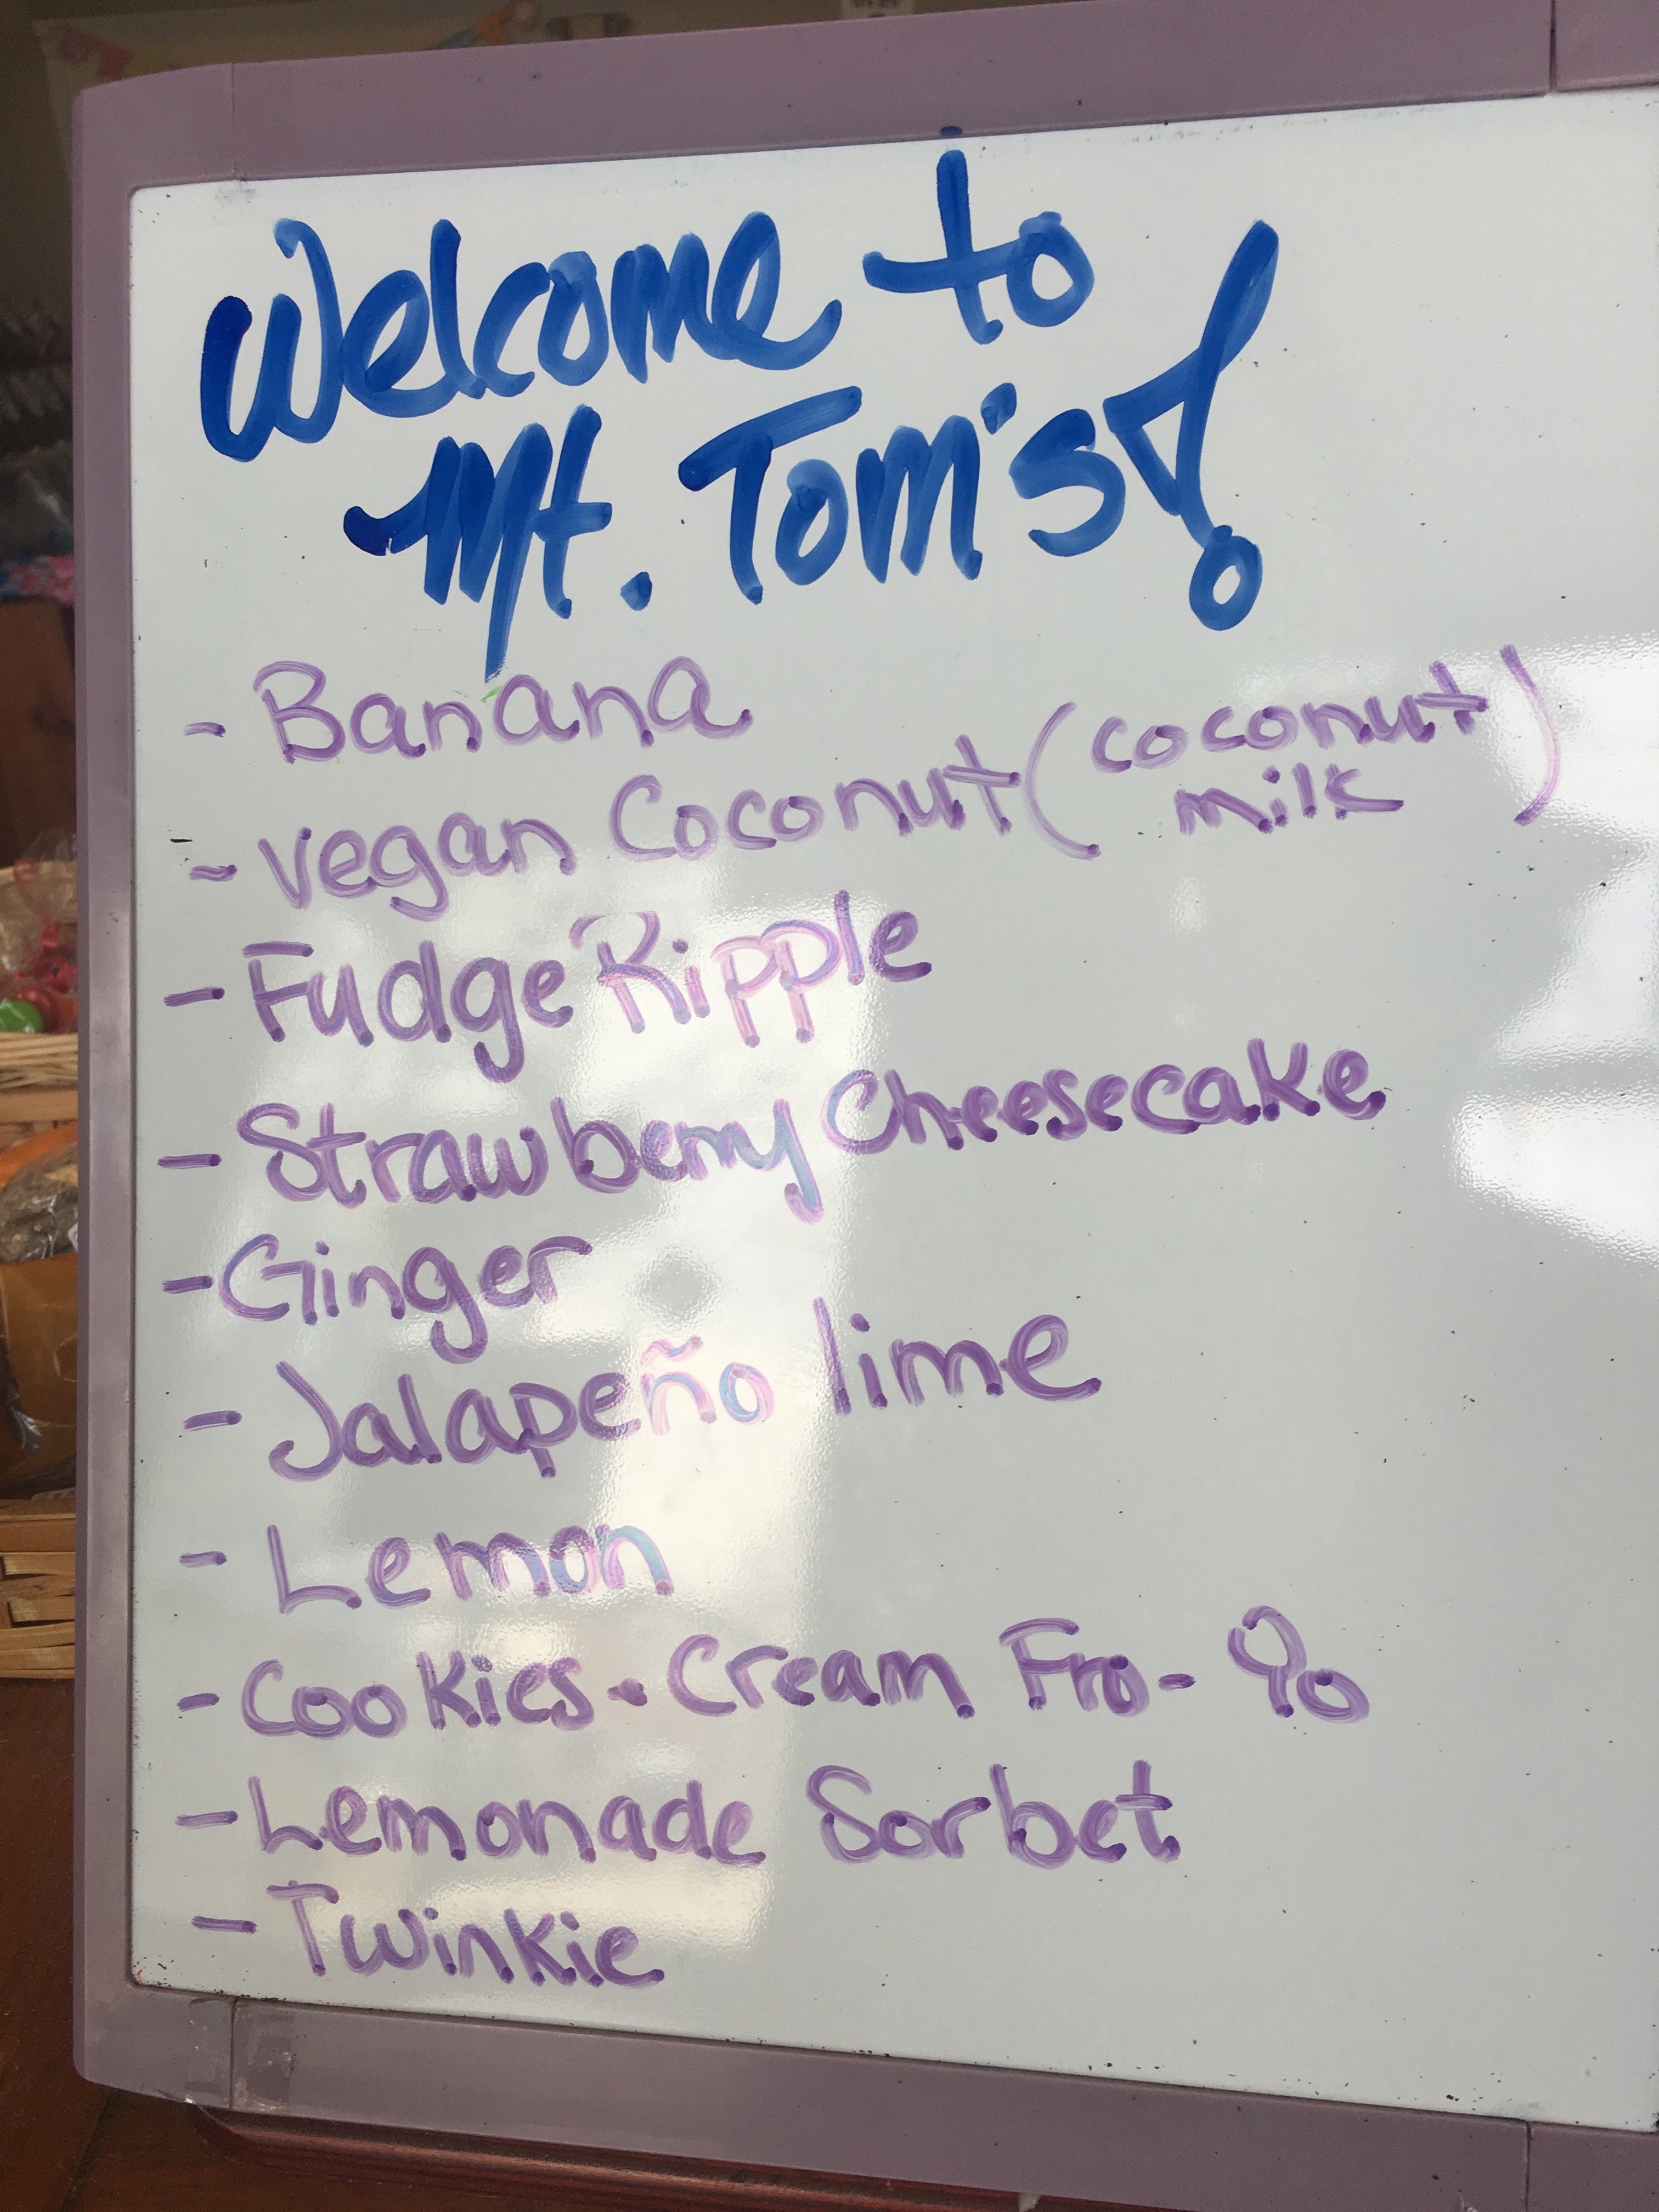 Welcome to
Mt. Tom's!
- Banana
- vegan Coconut (coconut
milk)
- Fudge Ripple
- Strawberry Cheesecake
- Ginger
- Jalapeño lime
- Lemon
- Cookies • Cream Fro-Yo
- Lemonade Sorbet
- Twinkie